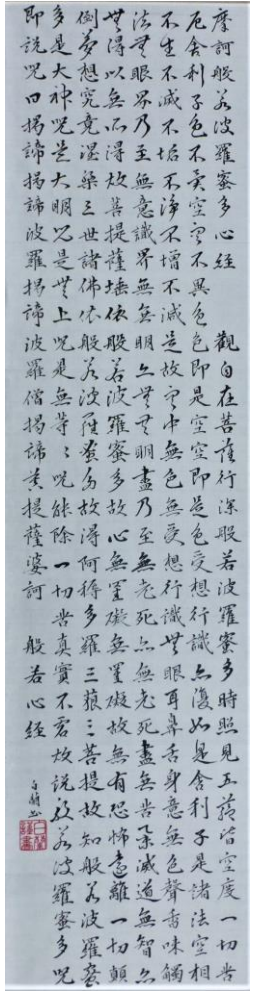 摩訶般若波羅蜜多心經　觀自在菩薩行深般若波羅蜜多時照見五蘊皆空度一切苦
厄舍利子色不異空空不異色色即是空空即是色受想行識亦復如是舍利子是諸法空相
不生不滅不垢不淨不增不減是故空中無色無受想行識無眼耳鼻舌身意無色聲香味觸
法無眼界乃至無意識界無無明亦無無明盡乃至無老死亦無老死盡無苦集滅道無智亦
無得以無所得故菩提薩埵依般若波羅蜜多故心無罣礙無罣礙故無有恐怖遠離一切顛
倒夢想究竟涅槃三世諸佛依般若波羅蜜多故得阿耨多羅三藐三菩提故知般若波羅蜜
多是大神咒是大明咒是無上咒是無等〻咒能除一切苦真實不虛故說般若波羅蜜多咒
即說咒曰揭諦揭諦波羅揭諦波羅僧揭諦菩提薩婆訶　般若心經